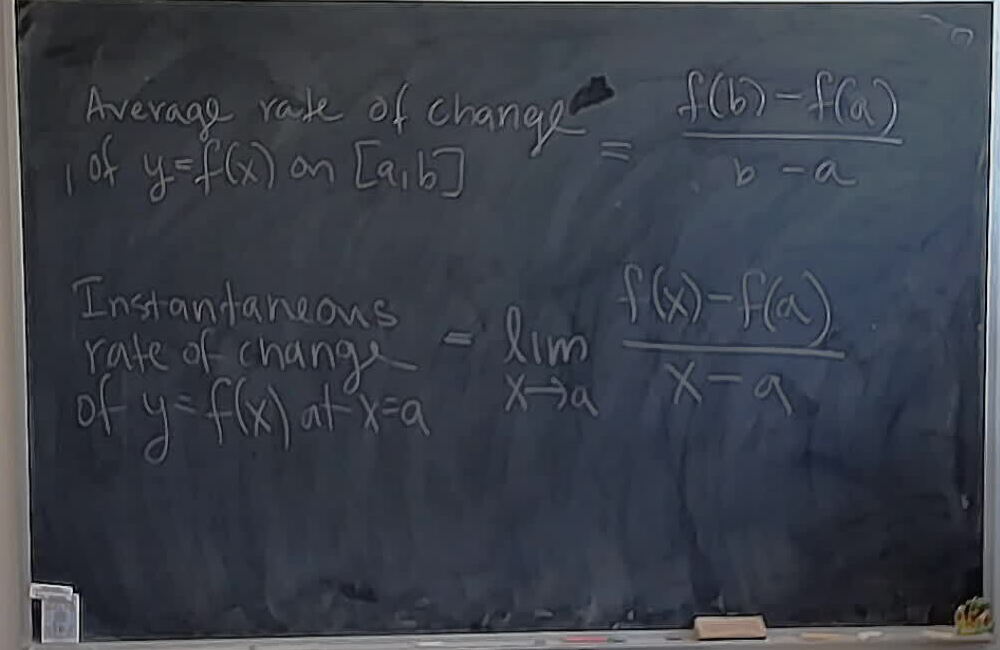 Average rate of change
of y=f(x) on [a,b]
= f(b)-f(a)
b-a
Instantaneous
rate of change
of y=f(x) at x=a
= lim
x→a
f(x)-f(a)
x-a